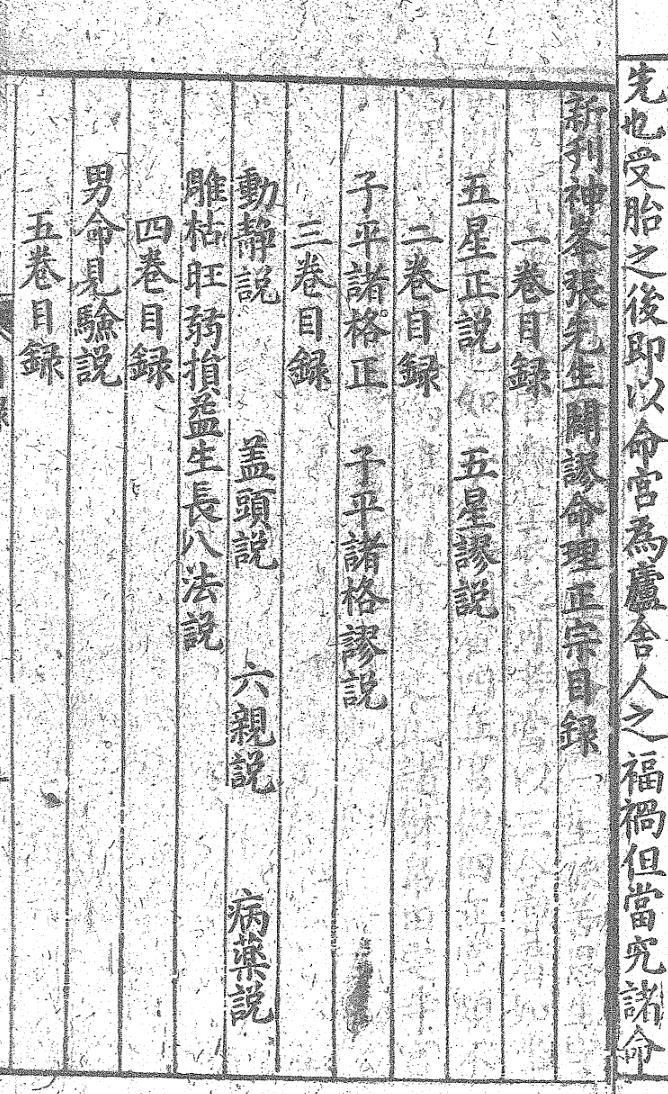 先也受胎之後即以命宮為廬舍人之福禍但當究諸命
新刊神峯張先生闢謬命理正宗目録
一巻目録
五星正説 五星謬説
二巻目録
子平諸格正 子平諸格謬説
三巻目録
動静説 盖頭説 六親説 病藥説
雕枯旺弱損益生長八法説
四巻目録
男命見驗説
五巻目録